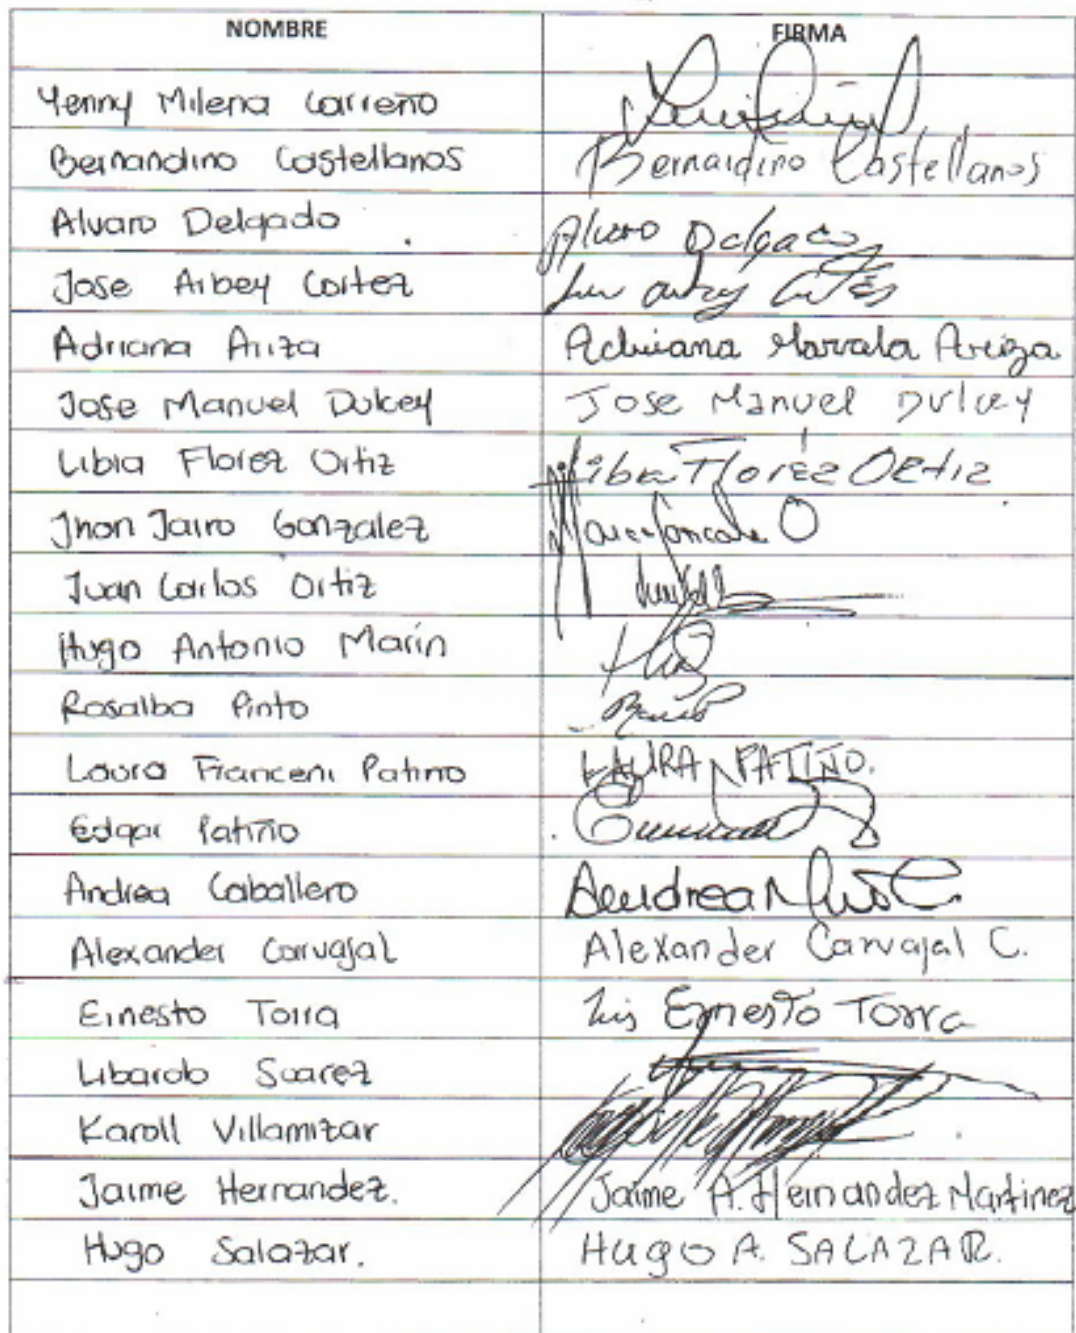 NOMBRE FIRMA
Yenny Milena Carreño
Bernandino Castellanos Bernardino Castellanos
Alvaro Delgado Alvaro Delgado
Jose Arbey Cortez
Adriana Ariza Adriana Marcela Ariza
Jose Manuel Dulcey Jose Manuel Dulcey
Libia Florez Ortiz Libia Florez Ortiz
Jhon Jairo Gonzalez
Juan Carlos Ortiz
Hugo Antonio Marín
Rosalba Pinto
Laura Franceni Patiño LAURA PATIÑO.
Edgar Patiño
Andrea Caballero Andrea
Alexander Carvajal Alexander Carvajal C.
Ernesto Torra Luis Ernesto Torra
Libardo Suarez
Karoll Villamizar
Jaime Hernandez. Jaime A. Hernandez Martinez
Hugo Salazar. HUGO A. SALAZAR.